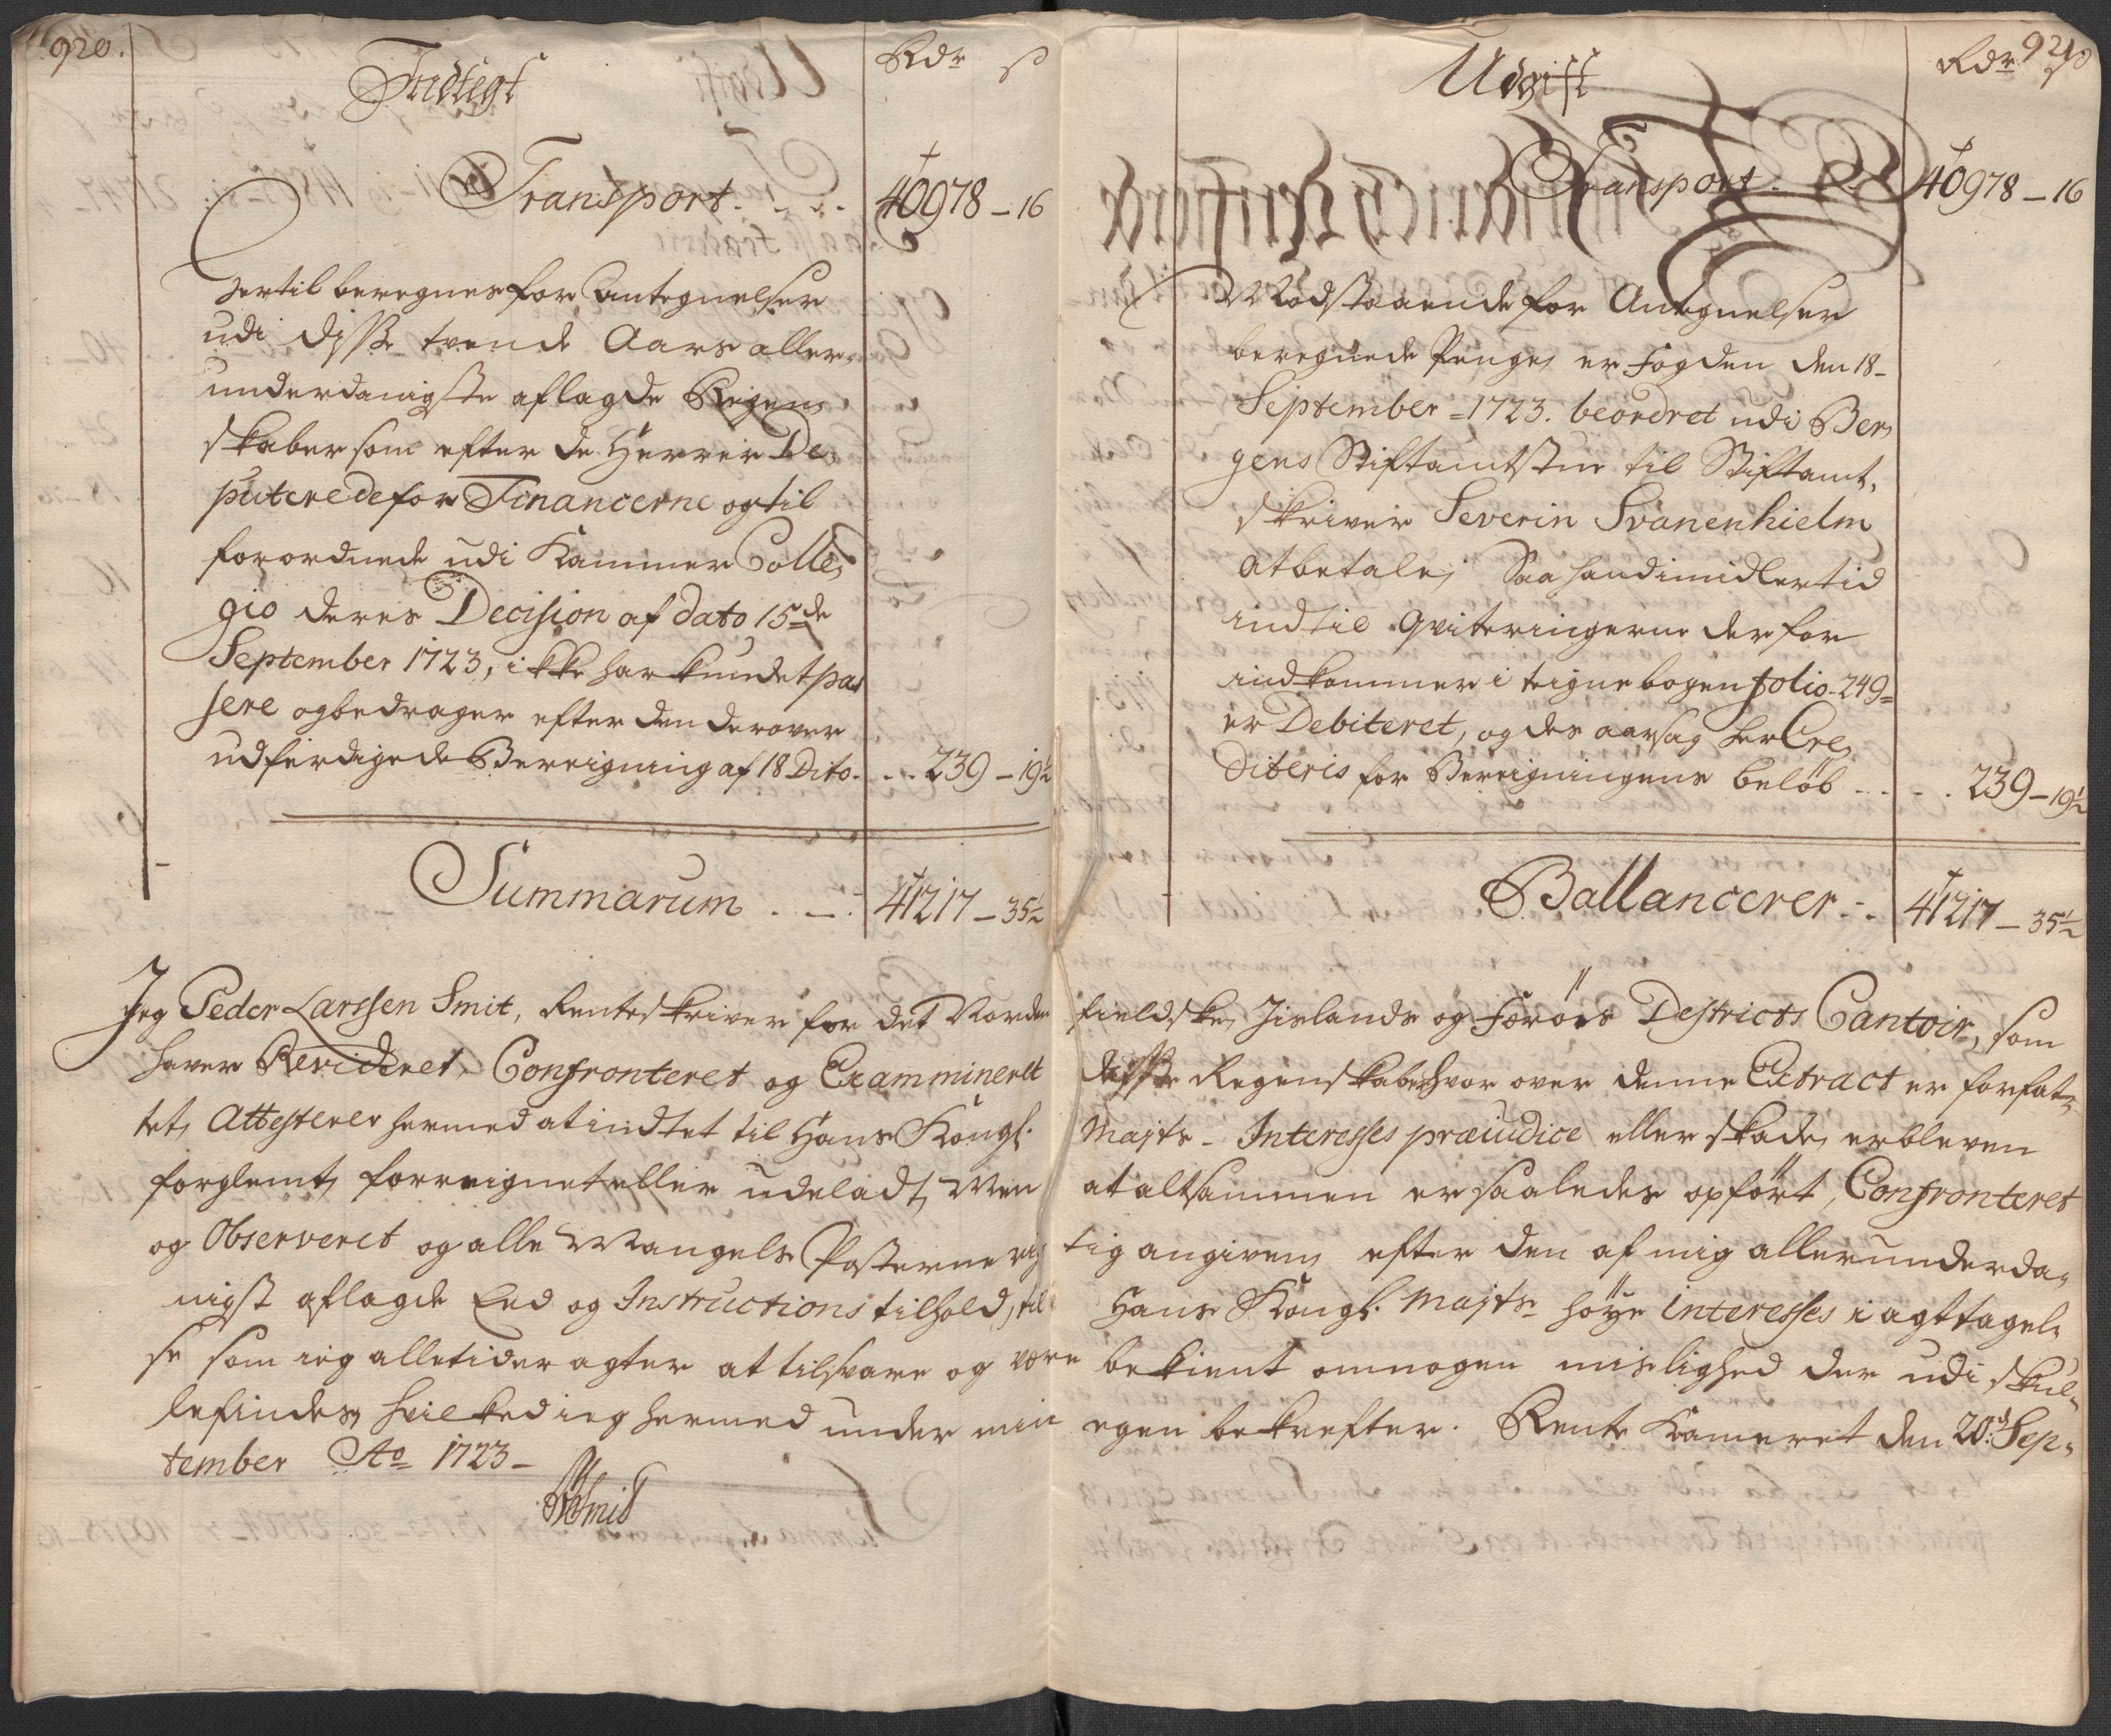 920.
Indtegt
Rdr ß
Transport. . . . 40978 – 16
Hertil beregnes for Antegnelser
udi disse tvende Aars aller,
underdanigste aflagde Regen,
skaber som efter de Herrer De,
puterede for Financerne og til
forordnede udi Kammer Colle,
gio deres Decision af dato 15de
September 1723, ikke har kundet pas
sere og bedrager efter den derover
udferdigede Bereigning af 18 Dito. . . . 239 – 19½
Summarum . . . 41217 – 35½
921
Udgift
Rdr ß
Transport. . . 40978 – 16
Modstaaende for Antegnelser
beregnede Penge, er Fogden den 18-
September = 1723. beordret udi Ber,
gens Stiftamtstue til Stiftamt,
skriver Severin Svanenhielm
at betale, Saa hand imidlertid
indtil qviteringerne derfor
indkommer i teignebogen folio 249=
er Debiteret, og des aarsag her Cre,
diteris for Bereigningens beløb . . . . 239 – 19½
Ballancerer . . 41217 – 35½
Jeg Peder Larssen Smit, Renteskriver for det Norden fieldske, Jislands og Færøes Destricts Cantoir, som
haver Revideret, Confronteret og Exammineret disse Regenskaber hvor over denne Extract er forfat,
tet, Attesterer hermed at indtet til Hans Kongl. Majts - Interesses præiudice eller skade, er bleven
forglemt, forreignet eller udeladt, Men at altsammen er saaledes opført, Confronteret
og Observeret og alle Mangels Posterne rig tig angiven, efter den af mig allerunderda,
nigst aflagde Eed og Instructions tilhold, til Hans Kongl. Majts høye interesses i agttagel,
se som ieg alletider agter at tilsvare og være bekient om nogen mislighed der udi skul,
le findes, hvilked ieg hermed under min egen bekrefter. Rente Kameret den 20d Sep,
tember Ao 1723 –
PLSmid